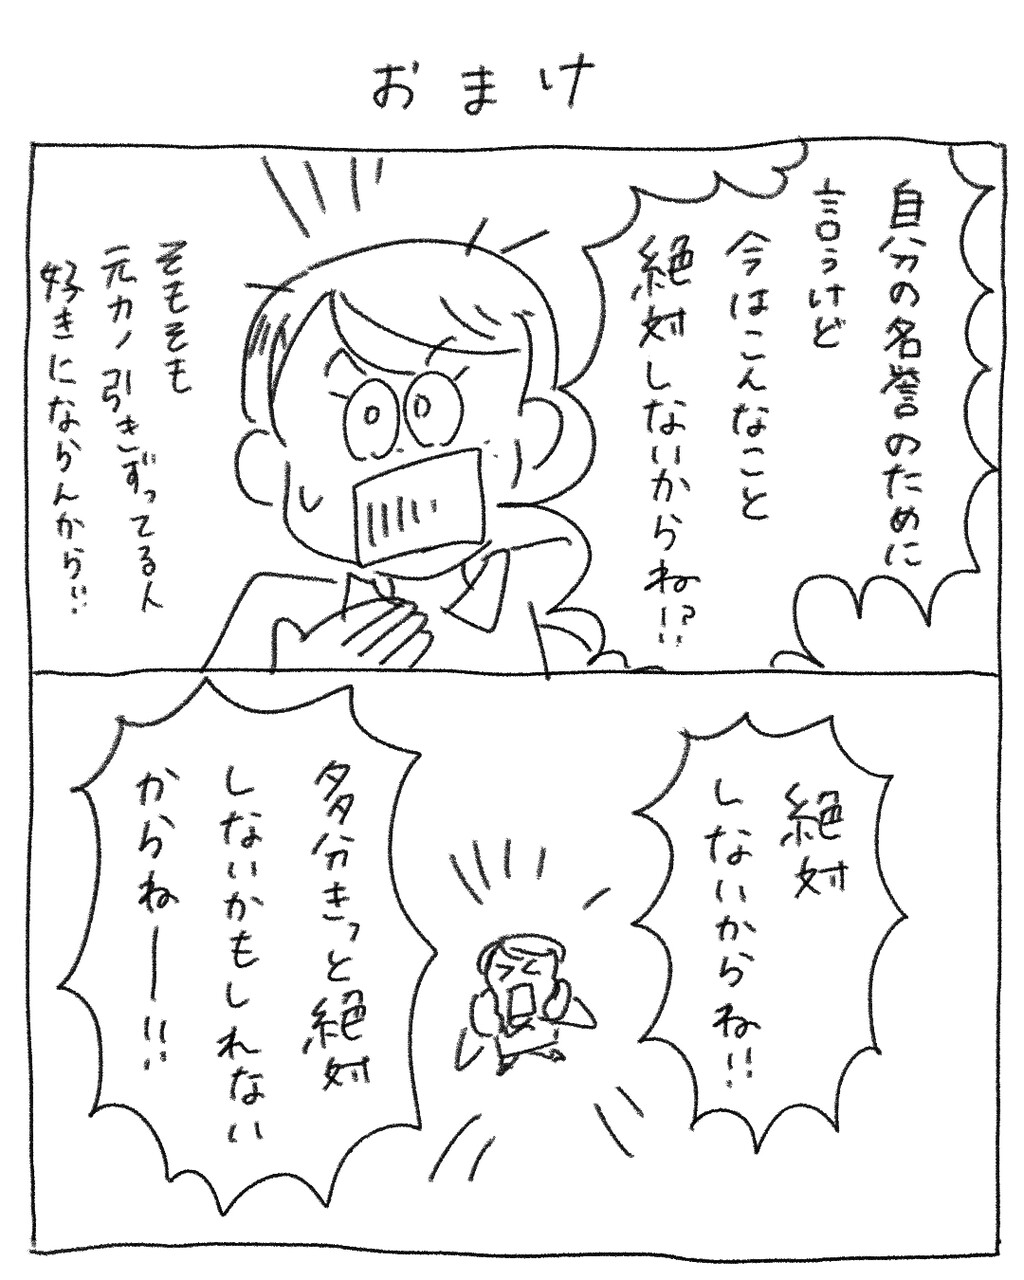 おまけ
自分の名誉のために
言うけど
今はこんなこと
絶対しないからね!?
そもそも
元カノ引きずってる人
好きにならんから!!
絶対
しないからね!!
多分きっと絶対
しないかもしれない
からねー!!